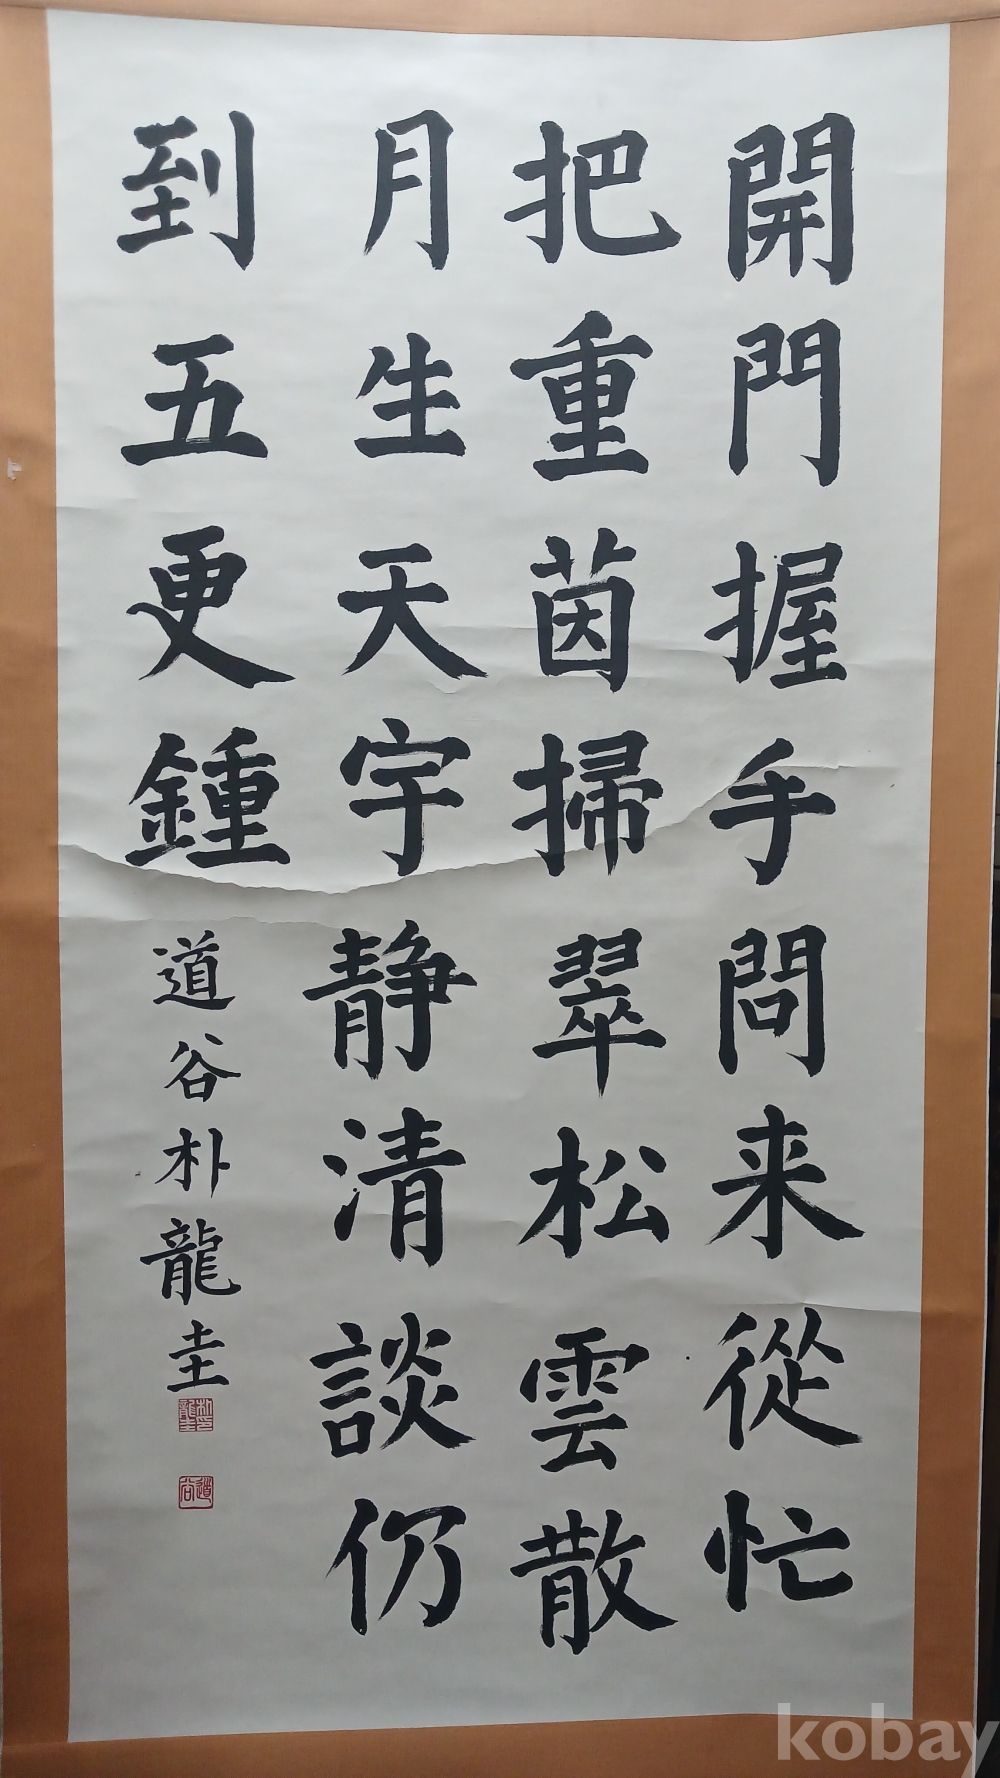 開門握手問来從忙
把重茵掃翠松雲散
月生天宇静清談仍
到五更鍾
道谷朴龍圭
朴龍圭印
道谷
kobay